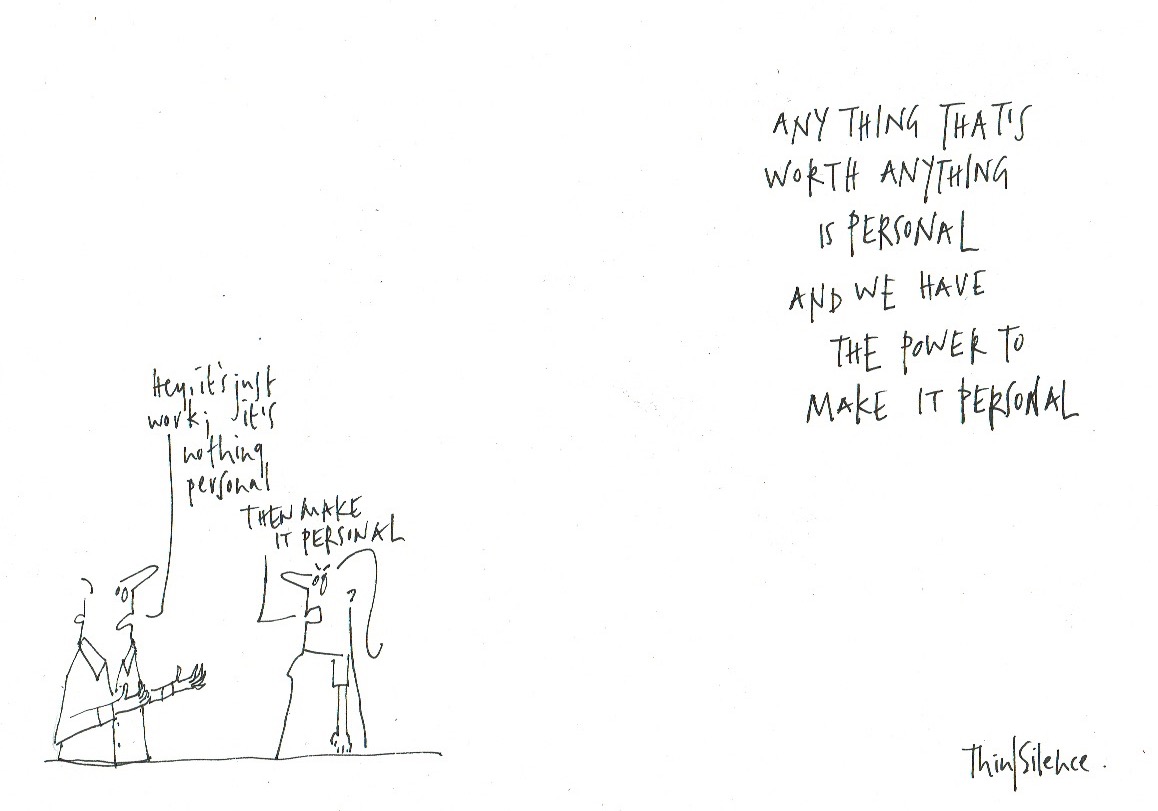 Hey, it's just
work; it's
nothing
personal
THEN MAKE
IT PERSONAL
ANY THING THAT'S
WORTH ANYTHING
IS PERSONAL
AND WE HAVE
THE POWER TO
MAKE IT PERSONAL
Thin/Silence.